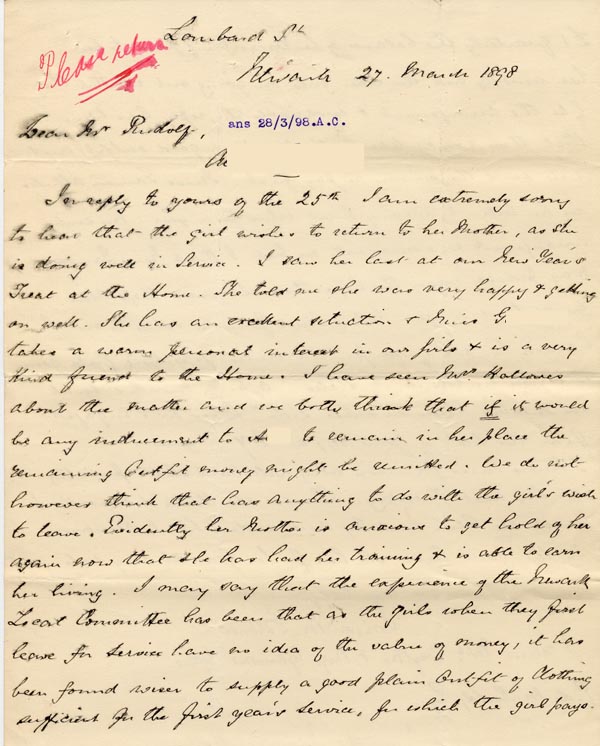 Please return
Lombard St
Newark 27. March 1898
Dear Mr Rudolf,
ans 28/3/98.A.C.
In reply to yours of the 25th I am extremely sorry
to hear that the girl wishes to return to her Mother, as she
is doing well in Service. I saw her last at our New Year's
Treat at the Home. She told me she was very happy & getting
on well. She has an excellent situation & Miss G.
takes a warm personal interest in our girls & is a very
kind friend to the Home. I have seen Mrs Hallowes
about the matter and we both think that if it would
be any inducement to A to remain in her place the
remaining Outfit money might be remitted. We do not
however think that has anything to do with the girl's wish
to leave. Evidently her Mother is anxious to get hold of her
again now that she has had her training & is able to earn
her living. I may say that the experience of the Newark
Local Committee has been that as the girls when they first
leave for service have no idea of the value of money, it has
been found wiser to supply a good plain Outfit of Clothing
sufficient for the first year's service, for which the girl pays.